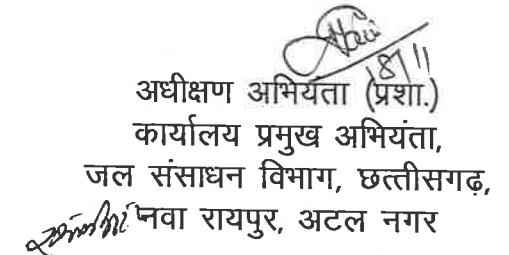 18/11
अधीक्षण अभियंता (प्रशा.)
कार्यालय प्रमुख अभियंता,
जल संसाधन विभाग, छत्तीसगढ़,
नवा रायपुर, अटल नगर